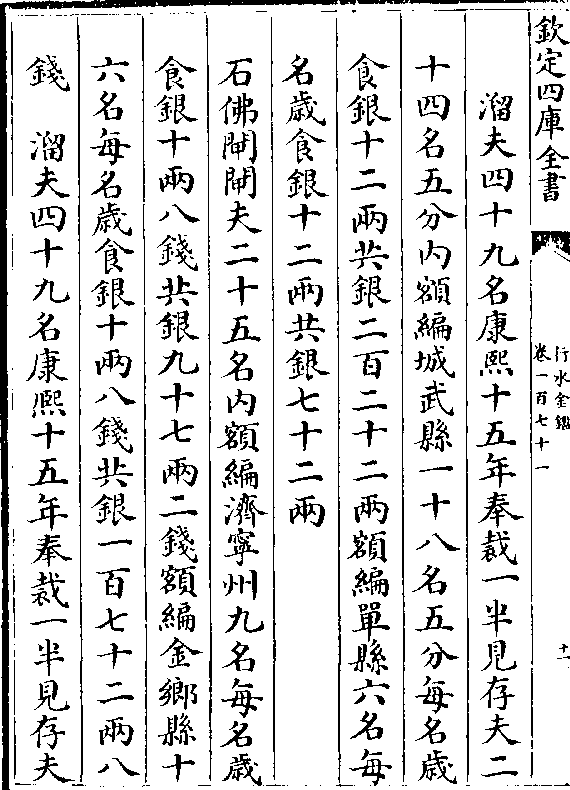 欽定四庫全書
行水金鑑
卷一百七十一
十一
溜夫四十九名康熙十五年奉裁一半見存夫二
十四名五分内額編城武縣一十八名五分每名歳
食銀十二兩共銀二百二十二兩額編單縣六名每
名歳食銀十二兩共銀七十二兩
石佛閘閘夫二十五名内額編濟寧州九名每名歳
食銀十兩八錢共銀九十七兩二錢額編金鄉縣十
六名每名歳食銀十兩八錢共銀一百七十二兩八
錢　溜夫四十九名康熙十五年奉裁一半見存夫